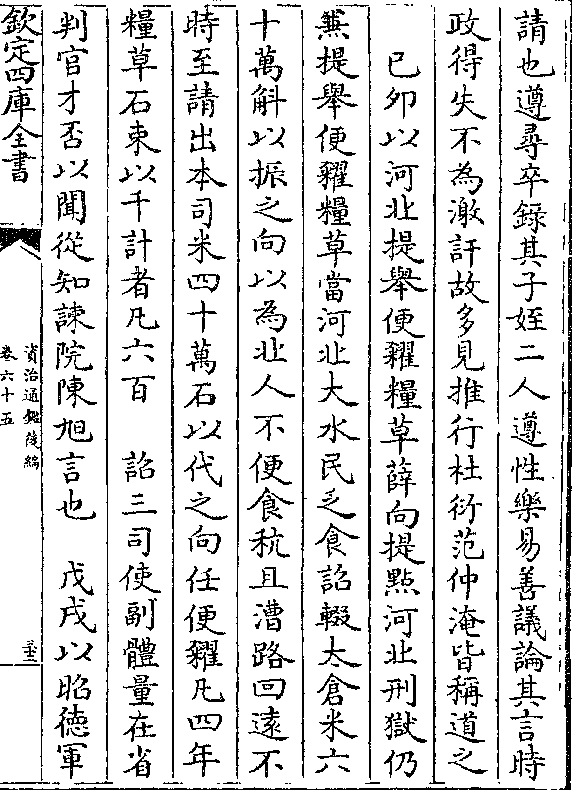 請也遵尋卒錄其子姪二人遵性樂易善議論其言時
政得失不為激訐故多見推行杜衍范仲淹皆稱道之
已卯以河北提舉便糴糧草薛向提點河北刑獄仍
兼提舉便糴糧草當河北大水民乏食詔輟太倉米六
十萬斛以振之向以為北人不便食秔且漕路回遠不
時至請出本司米四十萬石以代之向任便糴凡四年
糧草石束以千計者凡六百　詔三司使副體量在省
判官才否以聞從知諫院陳旭言也　戊戌以昭德軍
欽定四庫全書
資治通鑑後編
卷六十五